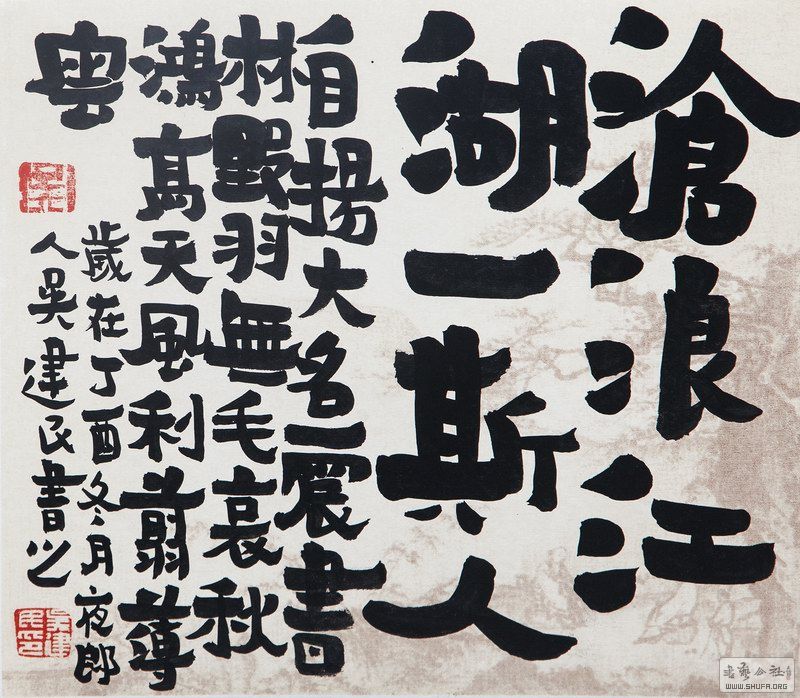 滄浪江
湖一斯人
揚大名震書
林毀羽無毛哀秋
鴻高天風利翦
粤
歲在丁酉冬月夜郎
人吳建民書之
吳建民印
书艺公社
WWW.SHUFA.ORG